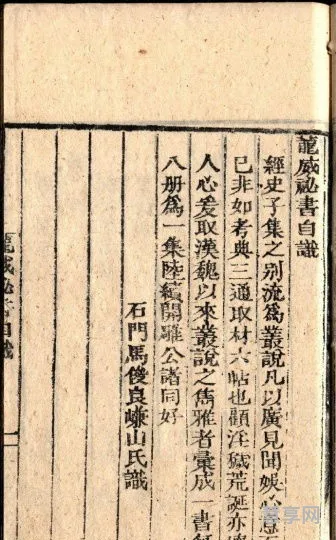 龍威祕書自識
經史子集之別流爲叢說凡以廣見聞娛心意
已非如考典三通取材六帖也顧汪穢荒誕亦
人心爰取漢魏以來叢說之雋雅者彙成一書
八册爲一集陸續開雕公諸同好
石門馬俊良嵰山氏識
龍威祕書自識